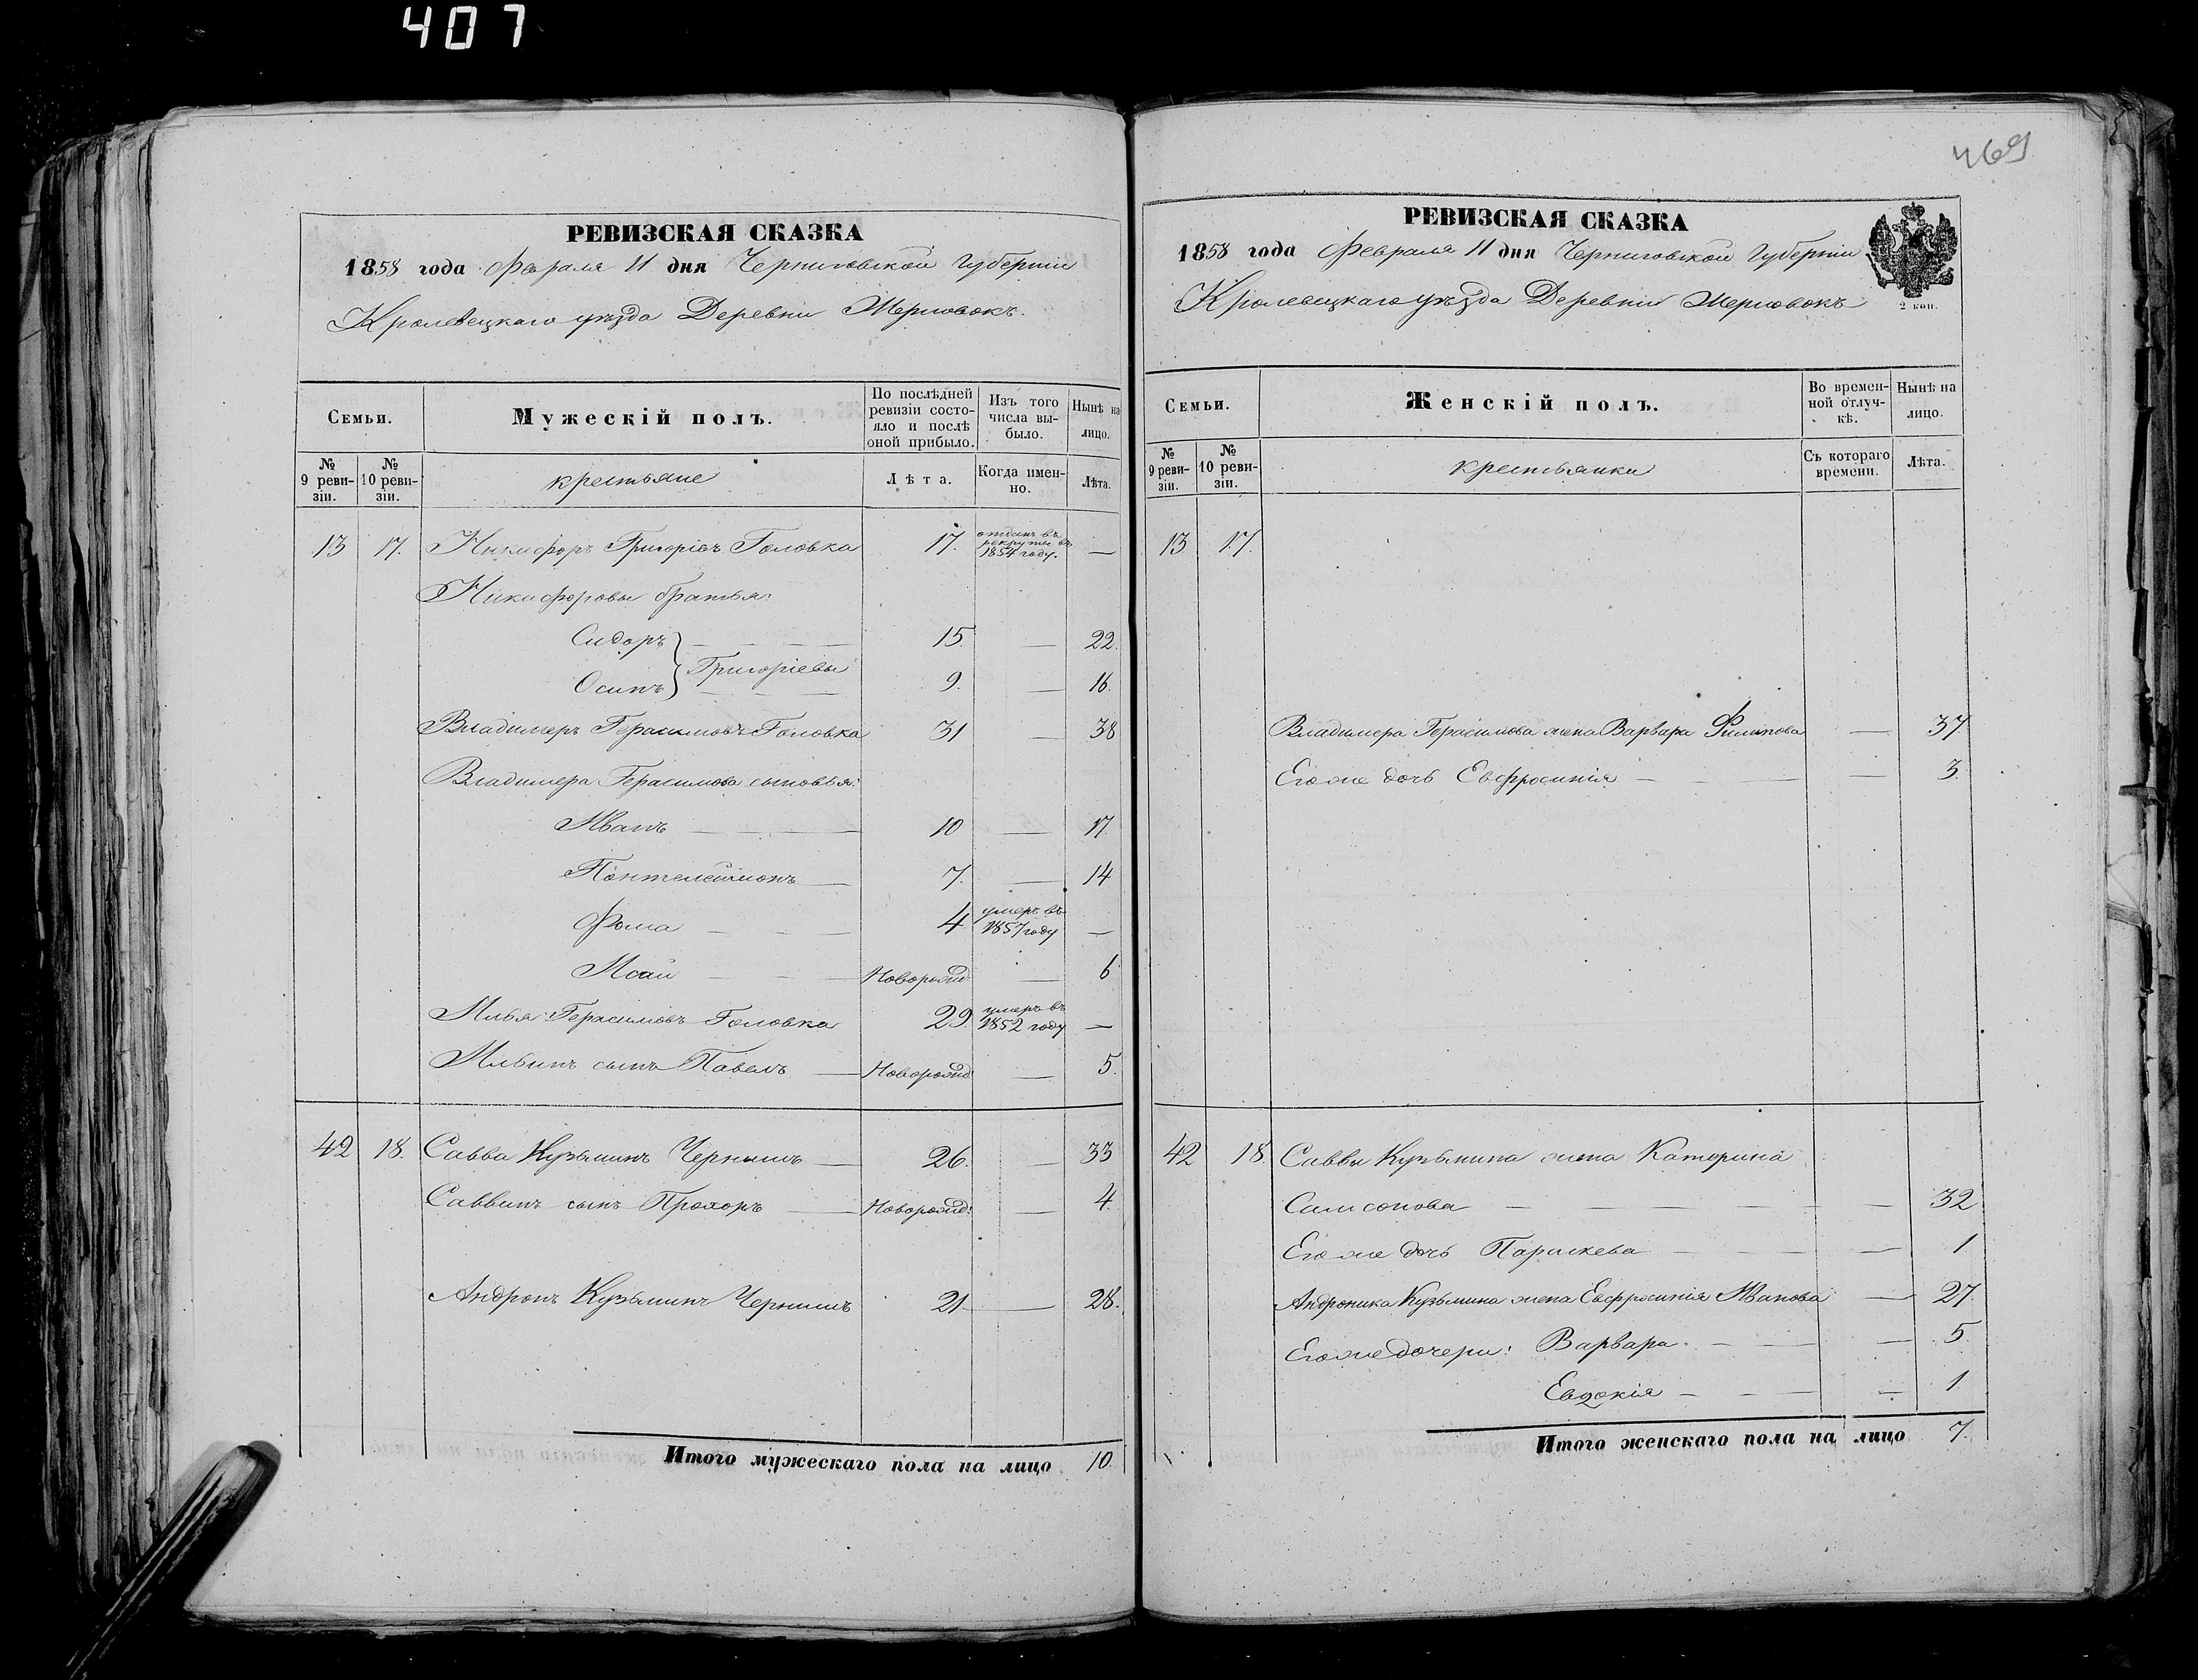 407
469
РЕВИЗСКАЯ СКАЗКА
1858 года Февраля 11 дня Черниговской Губерніи
Кролевецкаго уѣзда Деревни
Семьи.
Мужескій полъ.
По послѣдней ревизіи состояло и послѣ оной прибыло.
Изъ того числа выбыло.
Нынѣ на лицо.
№ 9 ревизіи.
№ 10 ревизіи.
крестьяне
Лѣта.
Когда именно.
Лѣта.
13 17. Никифоръ Григоріевъ Головка 17. отданъ въ рекруты въ 1854 году. —
Никифоровы братья:
Сидоръ 15. — 22.
Григоріевы
Осипъ 9. — 16.
Владимеръ Герасимовъ Головка 31 — 38
Владимера Герасимова сыновья:
Иванъ 10 — 17.
Пантелеймонъ 7. — 14
Фома 4 умеръ въ 1857 году —
Исай Новорожд: — 6
Илья Герасимовъ Головка 29. умеръ въ 1852 году —
Ильинъ сынъ Павелъ Новорожд: — 5.
42 18. Савва Кузьминъ Чернышъ 26. — 33
Саввинъ сынъ Прохоръ Новорожд: — 4.
Андронъ Кузьминъ Чернышъ 21 — 28.
Итого мужескаго пола на лицо 10.
РЕВИЗСКАЯ СКАЗКА
1858 года Февраля 11 дня Черниговской Губерніи
Кролевецкаго уѣзда Деревни
2 коп.
Семьи.
Женскій полъ.
Во временной отлучкѣ.
Нынѣ на лицо.
№ 9 ревизіи.
№ 10 ревизіи.
крестьянки
Съ котораго времени.
Лѣта.
13 17.
Владимера Герасимова жена Варвара Филипова — 37.
Его же дочь Евфросинія — 3.
42 18. Саввы Кузьмина жена Катерина
Самсонова — 32
Его же дочь Параскева — 1
Андроника Кузьмина жена Евфросинія Иванова — 27.
Его же дочери: Варвара — 5.
Евдокія — 1.
Итого женскаго пола на лицо 7.